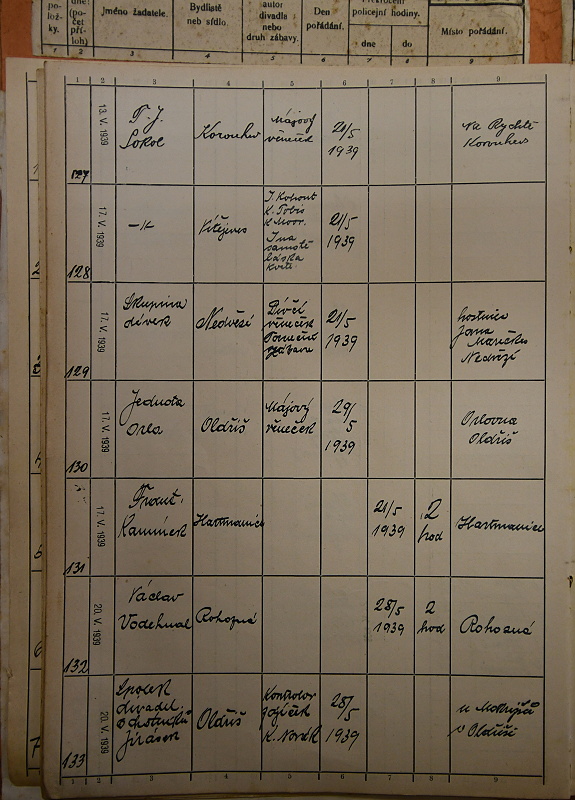 po-
ložky.
dne:
(po-
čet
pří-
loh)
Jméno žadatele.
Bydliště
neb sídlo.
autor
divadla
nebo
druh zábavy.
Den
pořádání.
policejní hodiny.
dne
do
Místo pořádání.
1 2 3 4 5 6 7 8 9
1 2 3 4 5 6 7 8 9
127
13. V. 1939
T. J.
Sokol
Korouhev
Májový
věneček
21/5
1939
Na Rychtě
Korouhev
128
17. V. 1939
Vítějeves
J. Kohout
21/5
1939
129
17. V. 1939
Skupina
dívek
Nedvězí
Dívčí
věneček
21/5
1939
hostinec
Jana
Nedvězí
130
17. V. 1939
Jednota
Orla
Oldřiš
Májový
věneček
29/
5
1939
Orlovna
Oldřiš
131
17. V. 1939
Frant.
Kamínek
Hartmanice
21/5
1939
2
hod
Hartmanice
132
20. V. 1939
Václav
Vodehnal
Rohozná
28/5
1939
2
hod
Rohozná
133
20. V. 1939
Spolek
divadel.
ochotníků
Jirásek
Oldřiš
Kontrolor
K. Novák
28/
5
1939
v Oldřiši
1 2 3 4 5 6 7 8 9